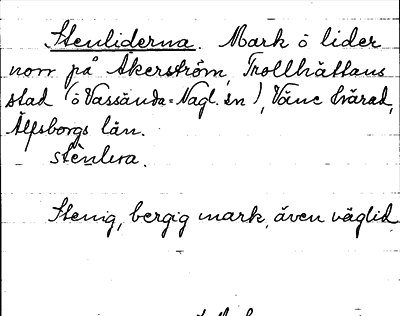 Stenliderna. Mark o lider
norr på Åkerström, Trollhättans
stad (o Vassända-Nagl. sn), Väne härad,
Älfsborgs län.
stenlera.
Stenig, bergig mark, även väglid